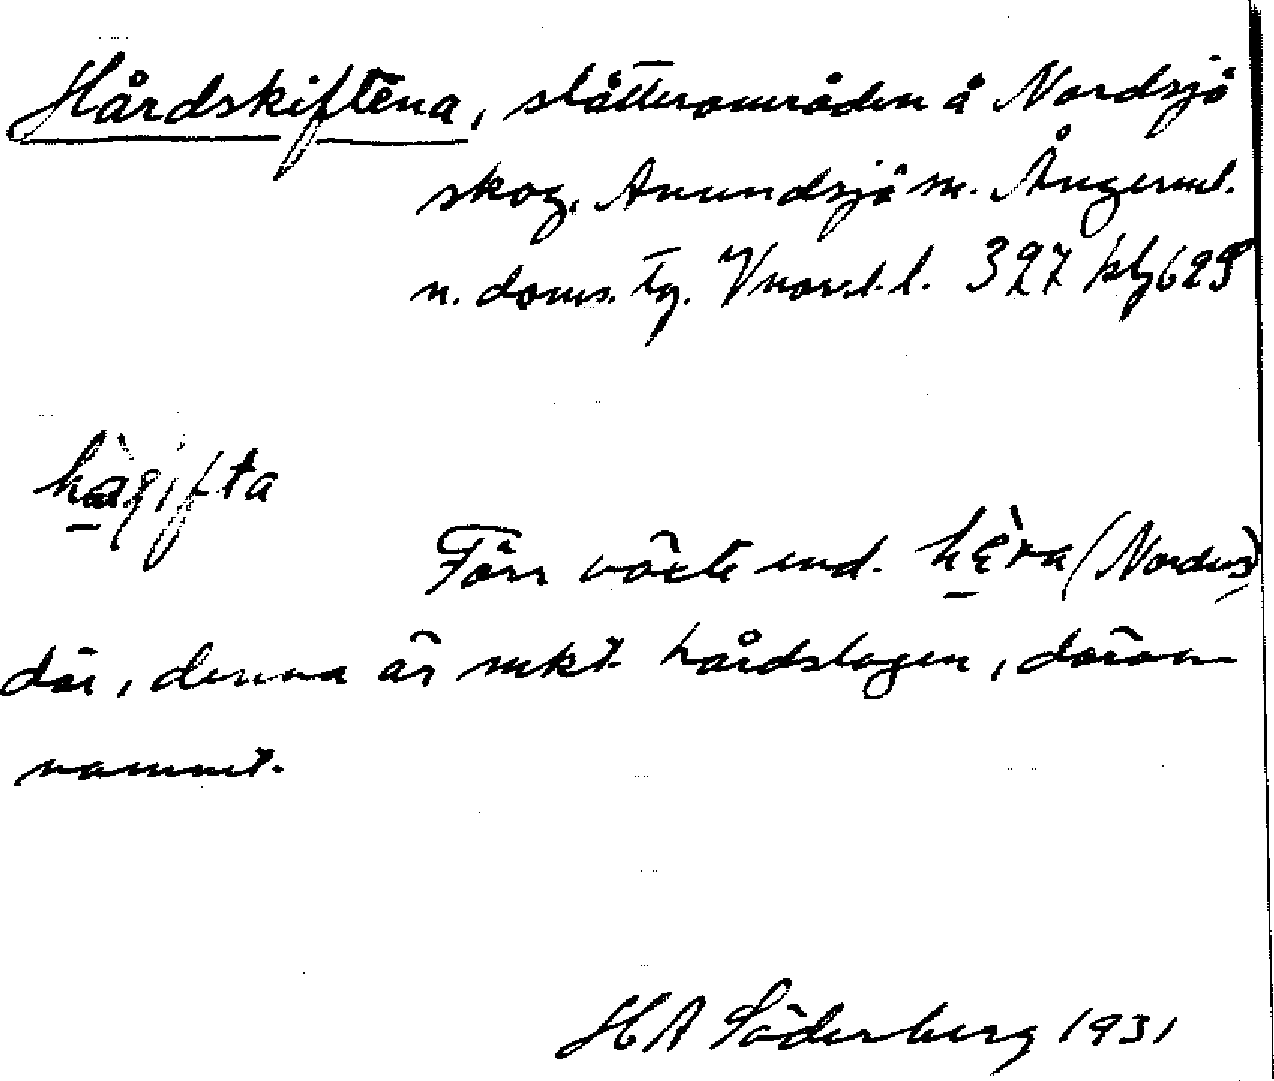 Hårdskiftena, slåtterområden å Nordsjö
skog, Anundsjö sn. Ångerml.
n. doms. tg. 327 hbg 629
hägifta
Förr växte end. hęra (Nardus)
där, denna är mkt hårdslagen, därav
namnet.
HA Söderberg 1931